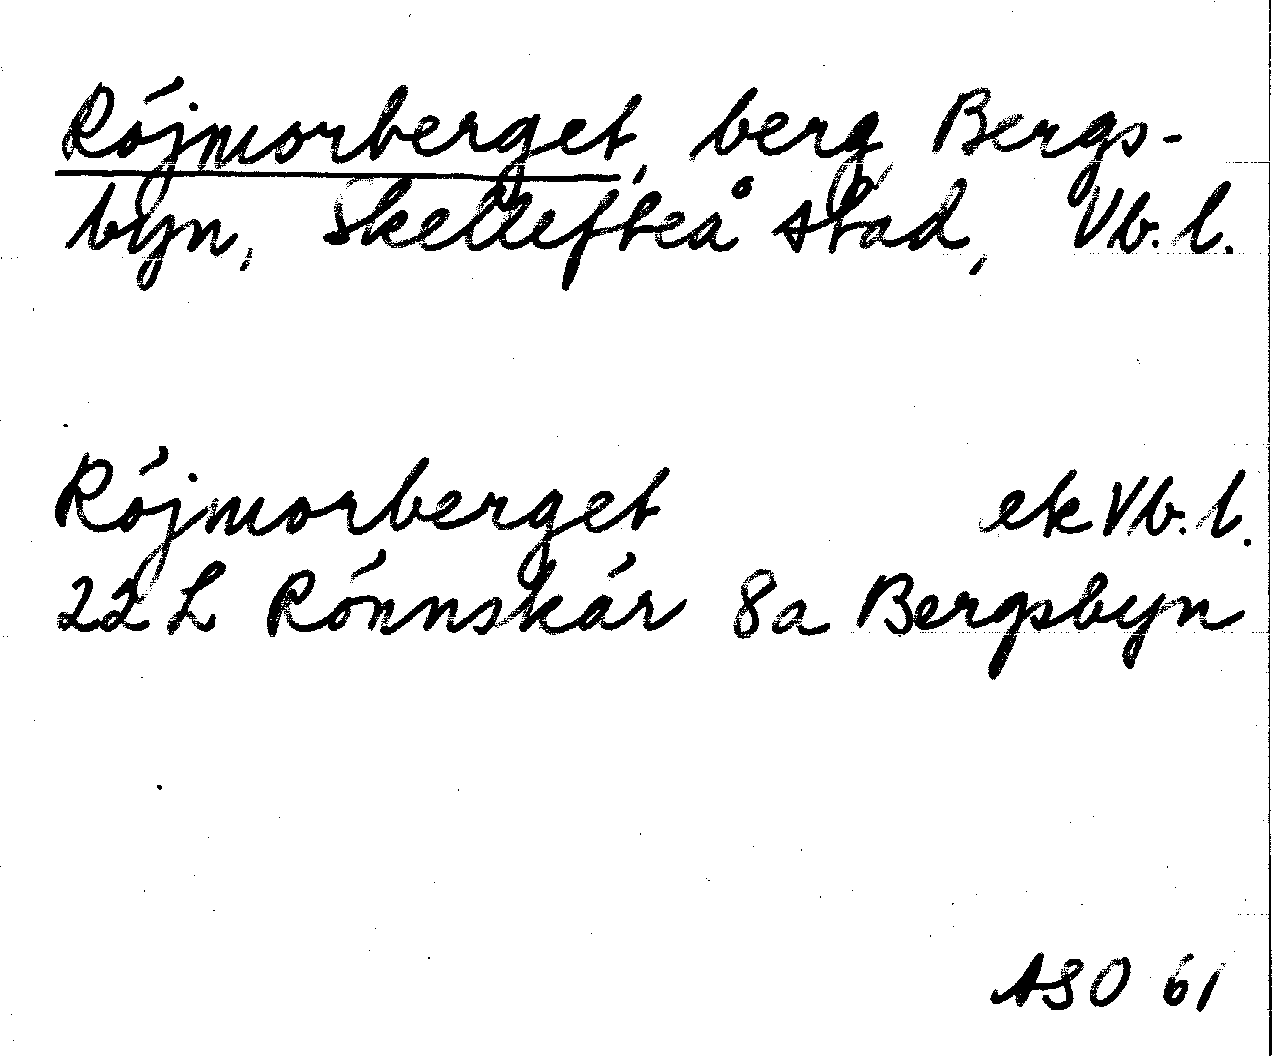 Röjmorberget, berg, Bergs-
byn, Skellefteå stad, Vb. l.
Röjmorberget ek Vb. l.
22 L Rönnskär 8a Bergsbyn
ASO 61